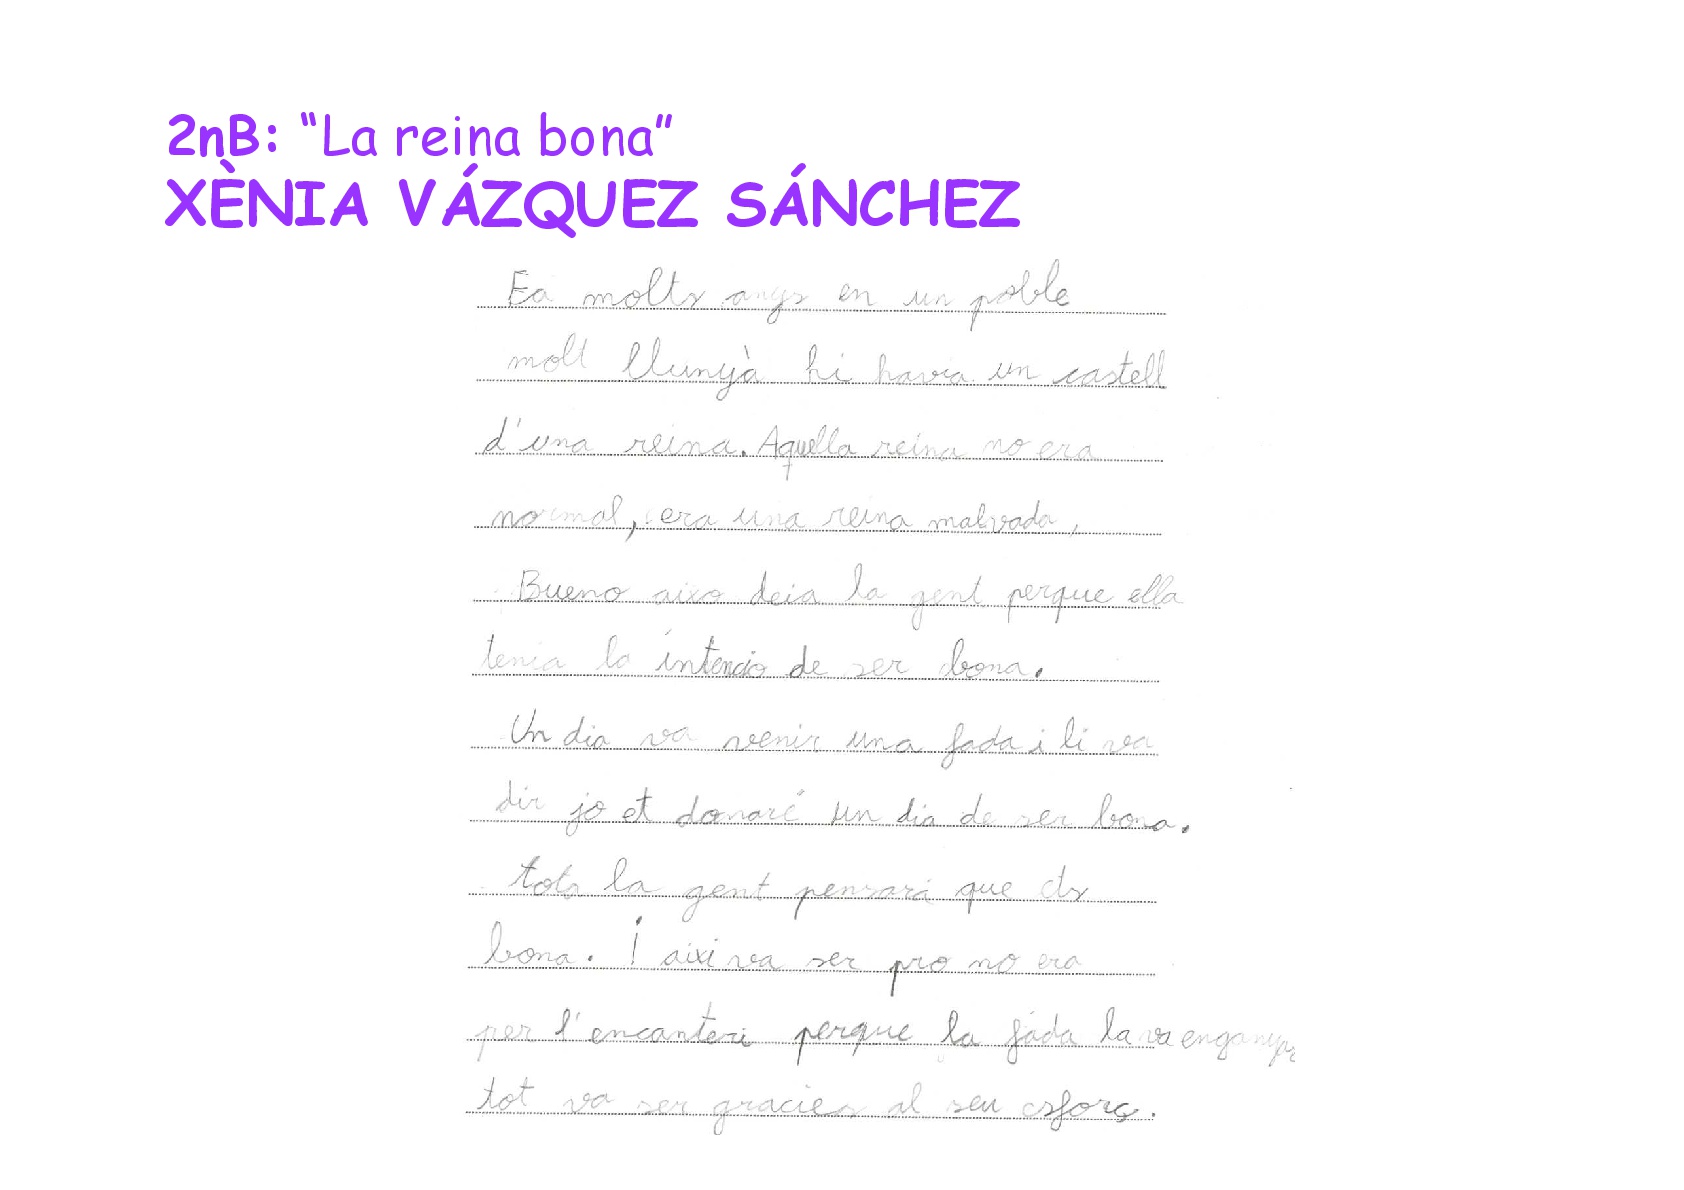 2nB: "La reina bona"
XÈNIA VÁZQUEZ SÁNCHEZ
Fa molts anys en un poble
molt llunyà hi havia un castell
d'una reina. Aquella reina no era
normal, era una reina malvada,
Bueno aixo deia la gent perque ella
tenia la intencio de ser bona.
Un dia va venir una fada i li va
dir jo et donaré un dia de ser bona.
tots la gent pensará que ets
bona. I aixi va ser pro no era
per l'encanteri perque la fada la va enganya
tot va ser gracies al seu esforç.